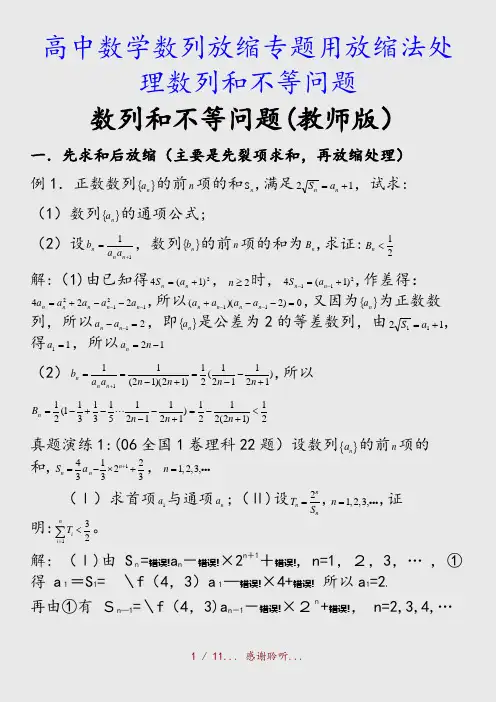 高中数学数列放缩专题用放缩法处
理数列和不等问题
数列和不等问题(教师版)
一．先求和后放缩（主要是先裂项求和，再放缩处理）
例1．正数数列{aₙ}的前n项的和Sₙ,满足2√Sₙ=aₙ+1，试求：
（1）数列{aₙ}的通项公式；
（2）设bₙ=1/(aₙaₙ₊₁)，数列{bₙ}的前n项的和为Bₙ,求证：Bₙ<1/2
解：(1)由已知得4Sₙ=(aₙ+1)²，n≥2时，4Sₙ₋₁=(aₙ₋₁+1)²,作差得：
4aₙ=aₙ²+2aₙ-aₙ₋₁²-2aₙ₋₁,所以(aₙ+aₙ₋₁)(aₙ-aₙ₋₁-2)=0,又因为{aₙ}为正数数
列，所以aₙ-aₙ₋₁=2，即{aₙ}是公差为2的等差数列，由2√S₁=a₁+1，
得a₁=1，所以aₙ=2n-1
（2）bₙ=1/(aₙaₙ₊₁)=1/((2n-1)(2n+1))=1/2(1/(2n-1)-1/(2n+1))，所以
Bₙ=1/2(1-1/3+1/3-1/5⋯1/(2n-1)-1/(2n+1))=1/2-1/(2(2n+1))<1/2
真题演练1:(06全国1卷理科22题）设数列{aₙ}的前n项的
和,Sₙ=4/3aₙ-1/3×2ⁿ⁺¹+2/3，n=1,2,3,•••
（Ⅰ）求首项a₁与通项aₙ；(Ⅱ)设Tₙ=2ⁿ/Sₙ，n=1,2,3,•••,证
明:∑ᵢ₌₁ⁿTᵢ<3/2。
解: （Ⅰ)由 Sₙ=错误!aₙ－错误!×2ⁿ⁺¹＋错误!, n=1，２，3，… , ①
得 a₁＝S₁= \f（4，3）a₁—错误!×4+错误! 所以a₁=2.
再由①有 Ｓₙ₋₁=\f（4，3)aₙ₋₁－错误!×２ⁿ+错误!, n=2,3,4,…
1 / 11... 感谢聆听...